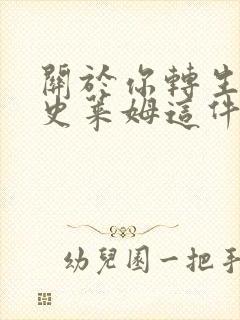 關於你轉生
史萊姆這件
幼兒園一把手